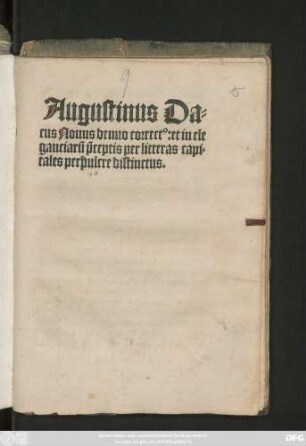 9
Augustinus Da-
cus Nouus denuo correctꝰ: et in ele
ganciarū p̄ceptis per litteras capi-
tales perpulcre distinctus.